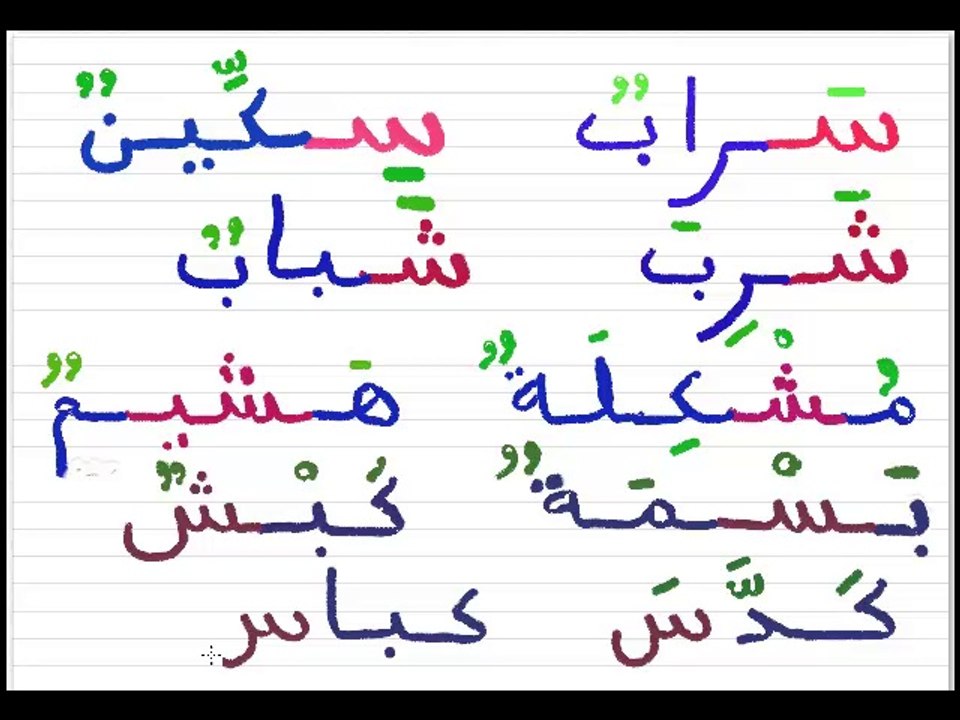 سَرابٌ سِكِّينٌ
شَرِبَ شَبابٌ
مُشْكِلَةٌ هَشيمٌ
بَسْمَةٌ كَبْشٌ
كَدَّسَ كباس